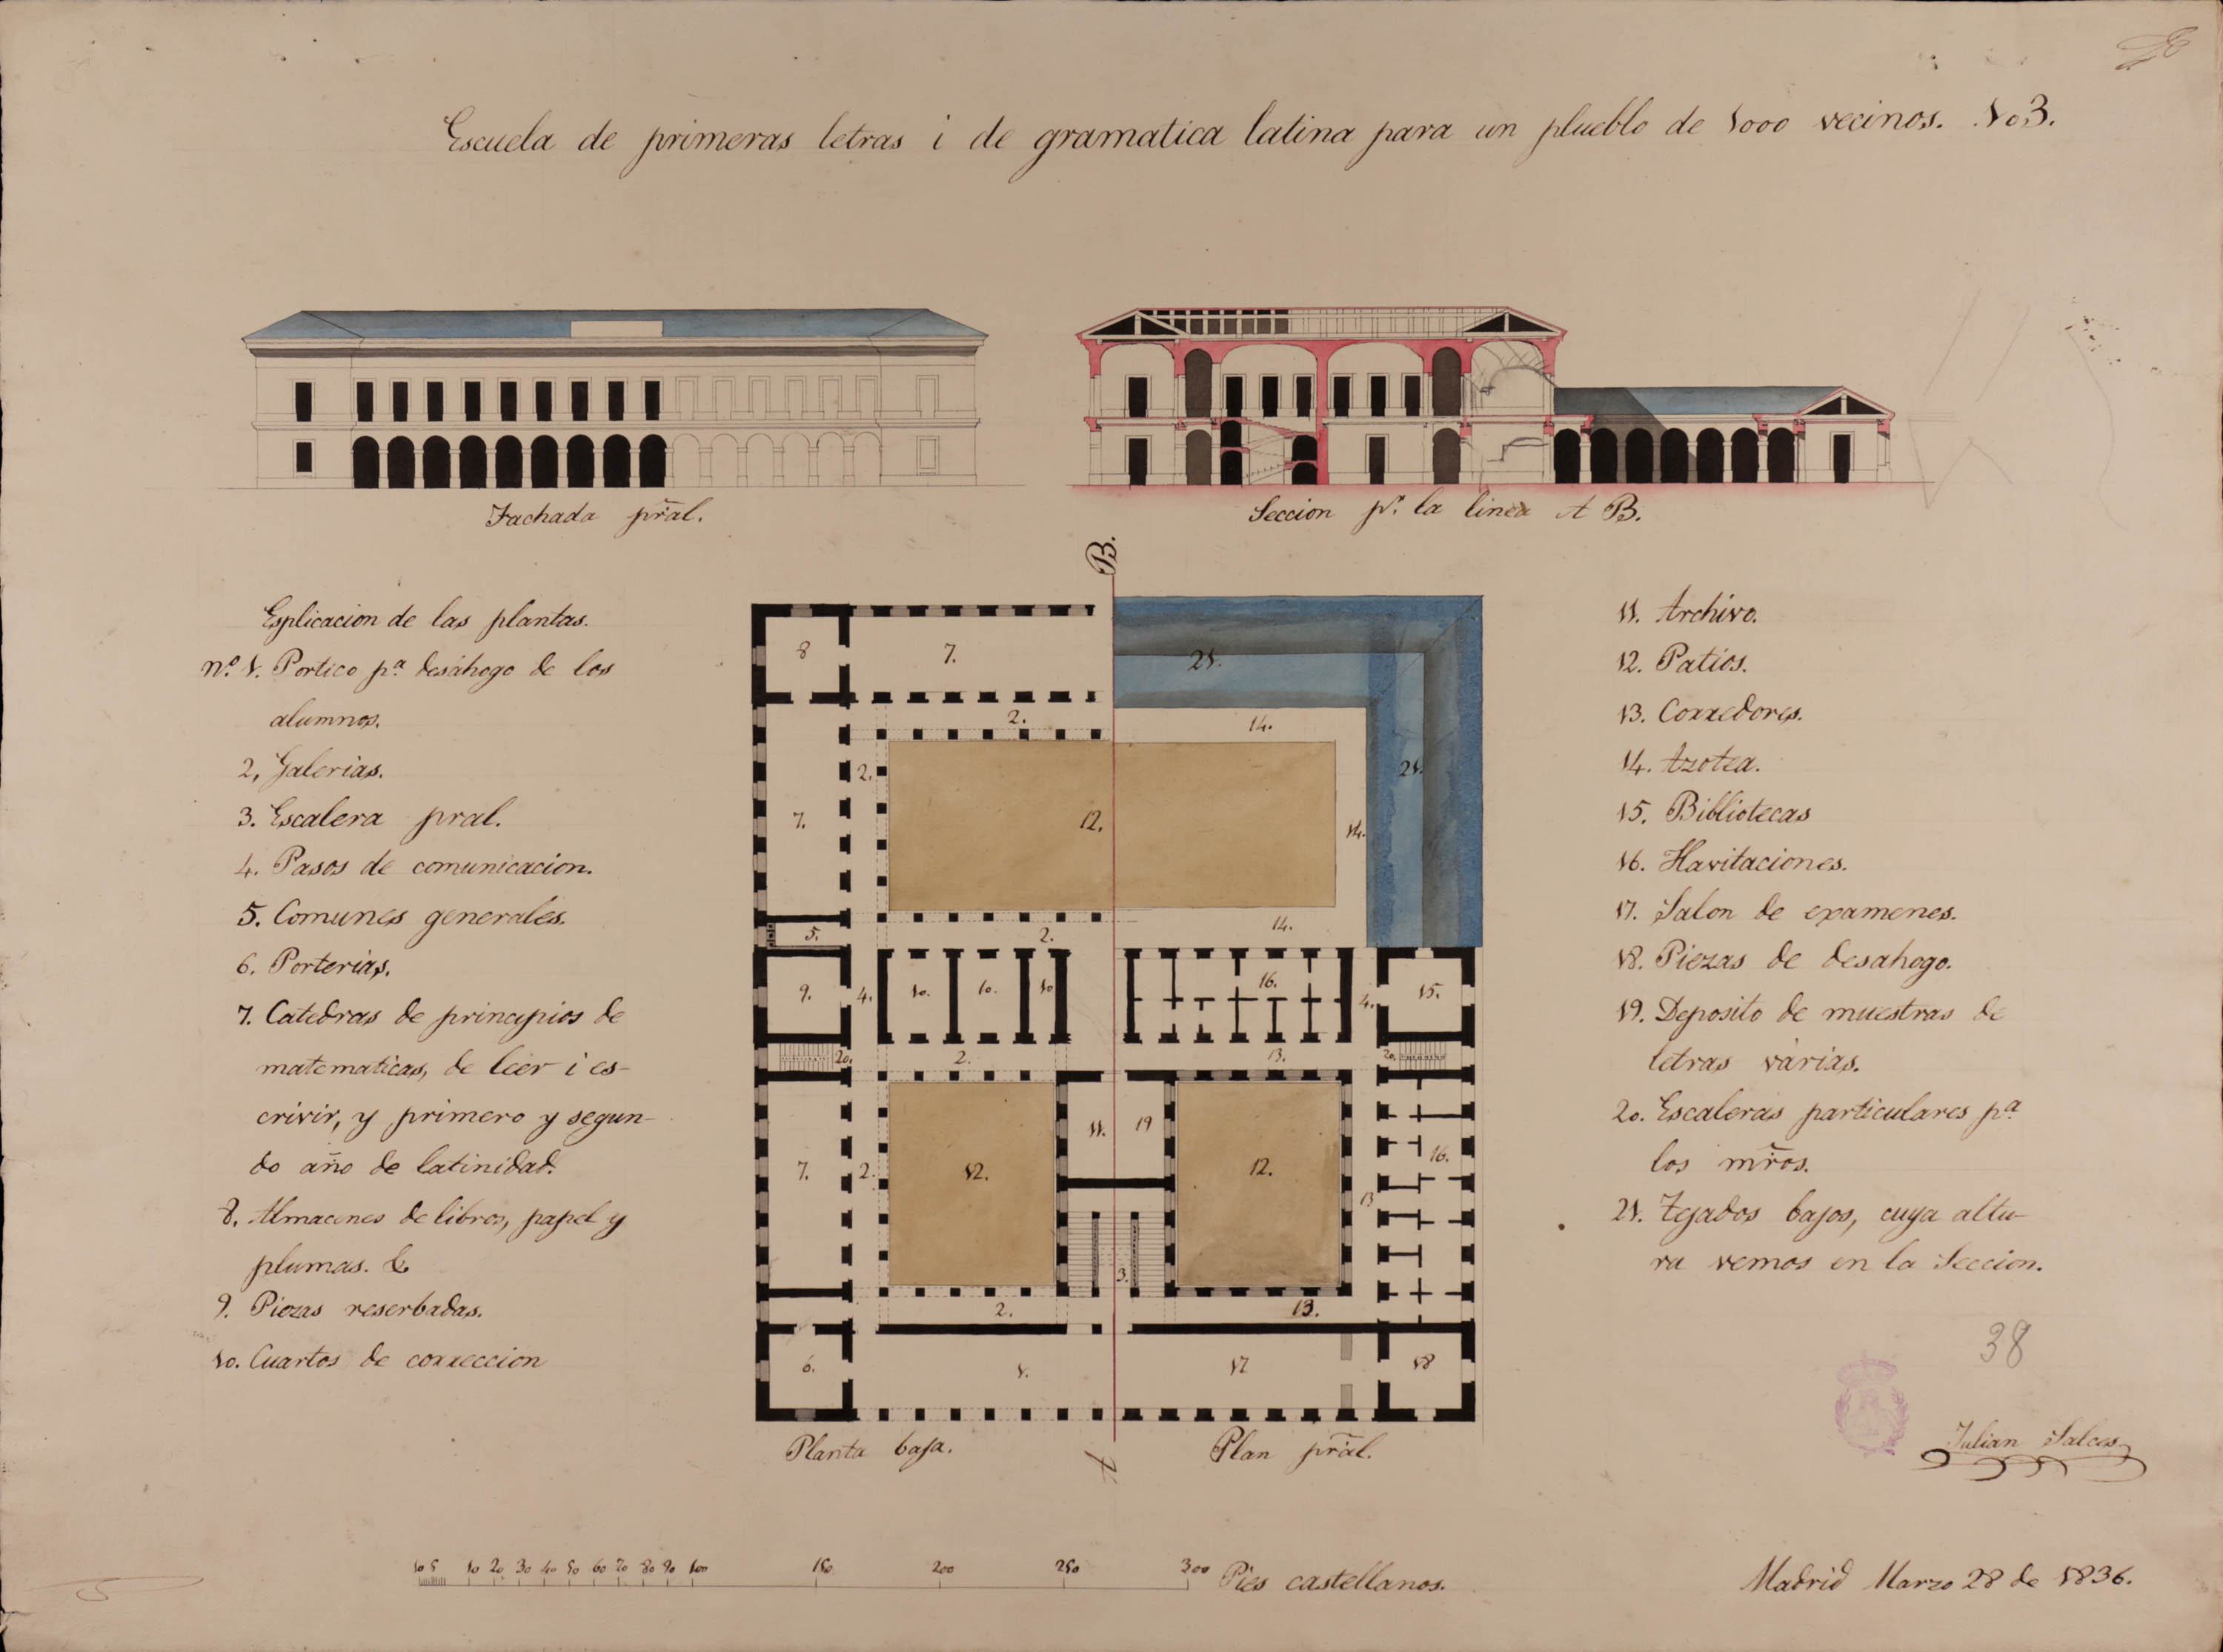 Escuela de primeras letras i de gramatica latina para un plueblo de 1000 vecinos. No3.
Fachada pr̃al.
Seccion pr. la linea A B.
Esplicacion de las plantas.
nº. 1. Portico pª. desáhogo de los
alumnos.
2, Galerias.
3. Escalera pral.
4. Pasos de comunicacion.
5. Comunes generales.
6. Porterias.
7. Catedras de principios de
matematicas, de leer i es-
crivir, y primero y segun-
do año de latinidad.
8. Almacenes de libros, papel y
plumas. &
9. Piezas reserbadas.
10. Cuartos de correccion
B.
8
7.
21.
2.
14.
2.
21.
7.
12.
14.
5.
2.
14.
9.
4.
10.
10.
10
16.
4.
15.
20.
2.
13.
20.
11.
19
7.
2.
12.
12.
13
16.
3.
2.
13.
6.
1.
17
18
Planta baja.
A
Plan pr̃al.
11. Archivo.
12. Patios.
13. Corredores.
14. Azotea.
15. Bibliotecas
16. Havitaciones.
17. Salon de examenes.
18. Piezas de desahogo.
19. Deposito de muestras de
letras várias.
20. Escaleras particulares pª
los mr̃os.
21. Tejados bajos, cuya altu-
ra vemos en la Seccion.
38
Julian Salces
10 5 10 20 30 40 50 60 70 80 90 100 150 200 250 300 Pies castellanos.
Madrid Marzo 28 de 1836.